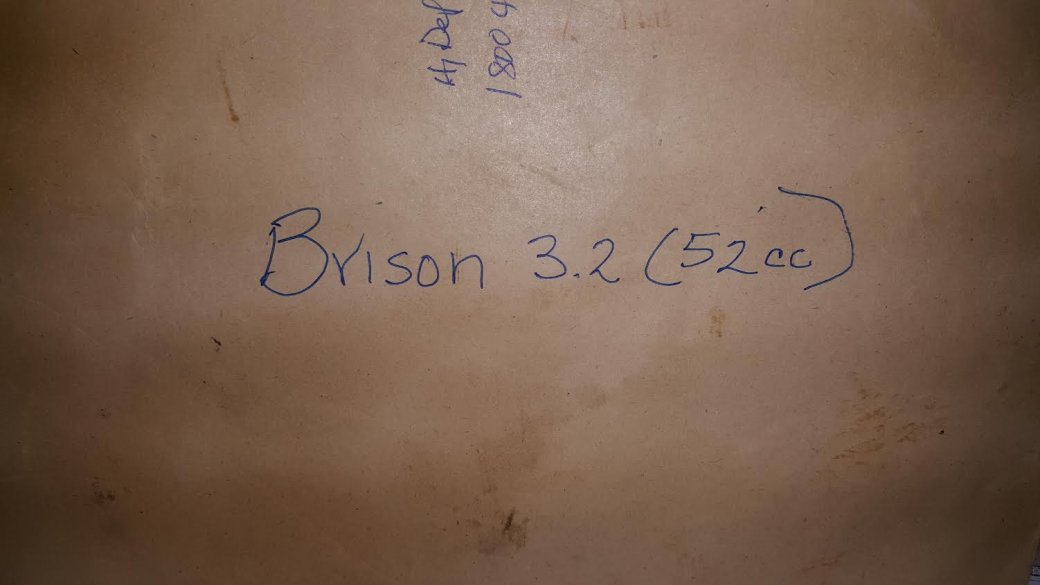 Hi Def
1800 4
Brison 3.2 (52cc)